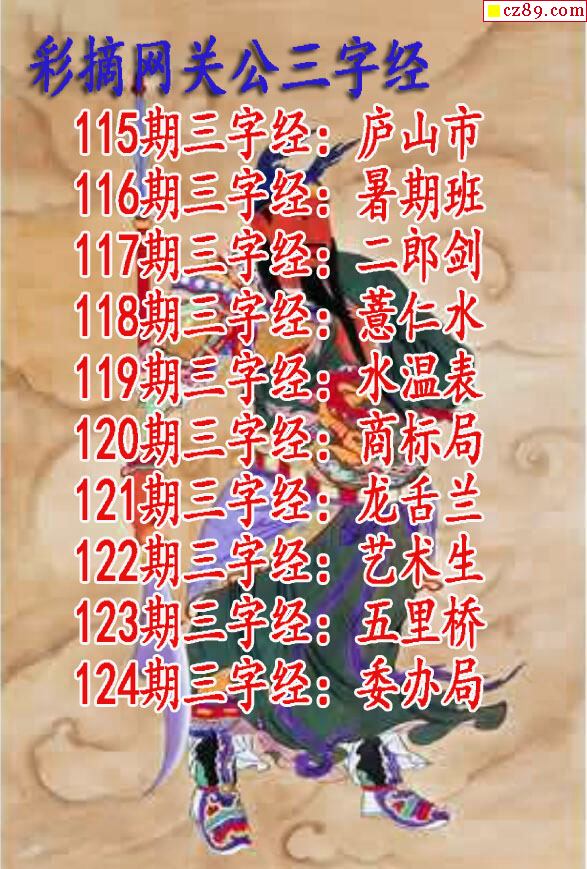 cz89.com
彩摘网关公三字经
115期三字经：庐山市
116期三字经：暑期班
117期三字经：二郎剑
118期三字经：薏仁水
119期三字经：水温表
120期三字经：商标局
121期三字经：龙舌兰
122期三字经：艺术生
123期三字经：五里桥
124期三字经：委办局